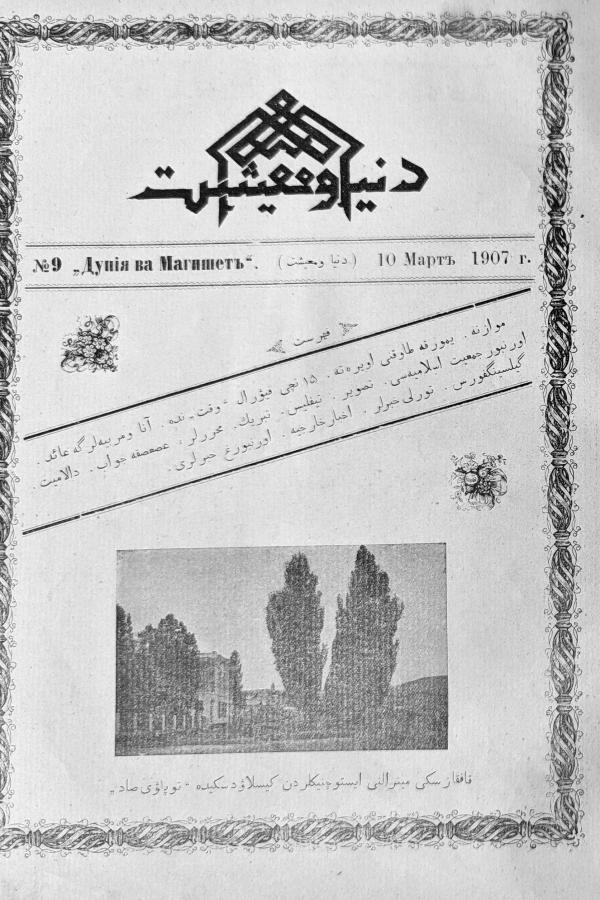 دنیا و معیشت
№9 „Дунія ва Магишетъ“. (دنیا ومعیشت) 10 Мартъ 1907 г.
فهرست
موازنه . یمورقه طاوقنی اویره‌ته . ۱۵ نچی فیۋرال «وقت» نده . آتا ومربیه‌لرگه عائد .
اورنبور جمعیت اسلامیه‌سی . تصویر . تیفلیس . تبریك . محررلر . جواب . دالامیت
گیلسینگفورس . تورلی خبرلر . اخبار خارجیه . اورنبورغ خبرلری .
قافقازسكی مینرالنی ایستوچنیكلردن كیسلاۋدسكیده «توپاۋی صاد»